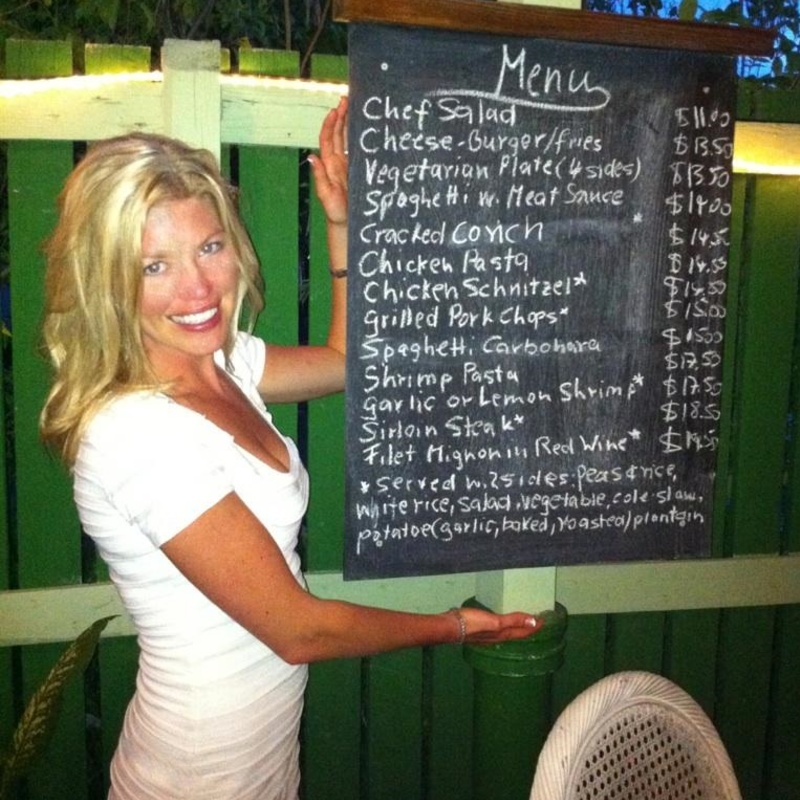 Menu
Chef Salad $11.00
Cheese-Burger/fries $13.50
Vegetarian Plate (4 sides) $13.50
Spaghetti w. Meat Sauce $14.00
Cracked Conch * $14.50
Chicken Pasta $14.50
Chicken Schnitzel* $14.50
Grilled Pork Chops* $15.00
Spaghetti Carbonara $15.00
Shrimp Pasta $17.50
Garlic or Lemon Shrimp* $17.50
Sirloin Steak* $18.50
Filet Mignon in Red Wine* $19.50
* served w. 2 sides: peas & rice,
white rice, salad, vegetable, cole slaw,
potatoe (garlic, baked, roasted) plantain